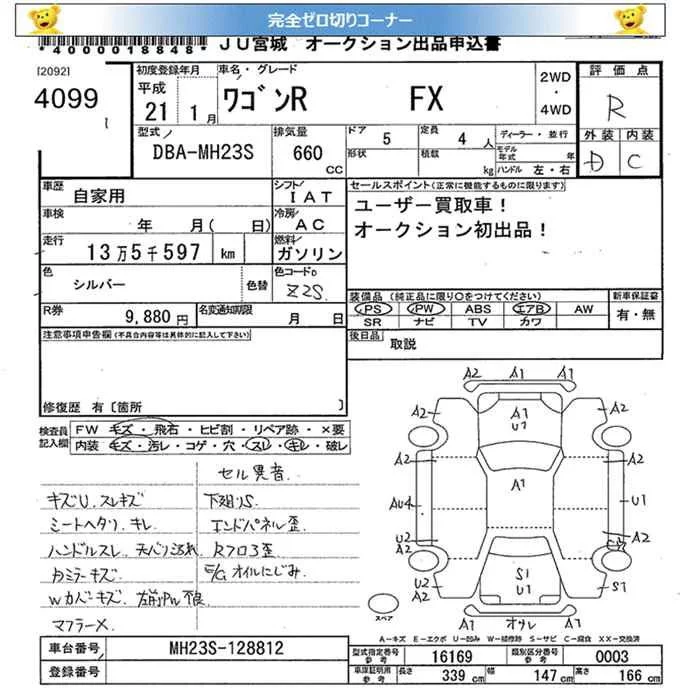 完全ゼロ切りコーナー
*4000018848* JU宮城 オークション出品申込書
[2092]
4099
初度登録年月 車名・グレード 2WD・4WD 評価点
平成 21 1月 ワゴンR FX R
型式 排気量 ドア 5 定員 4人 ディーラー・並行 外装 内装
DBA-MH23S 660 CC 形状 積載 kg モデル年式 年 ハンドル 左・右 D C
車歴 自家用 シフト IAT セールスポイント(正常に機能するものに限ります)
車検 年 月( 日) 冷房 AC ユーザー買取車!
走行 13万5千597 km 燃料 ガソリン オークション初出品!
色 シルバー 色替 色コードNo Z2S
装備品(純正品に限り○をつけてください) 新車保証書
R券 9,880円 名変通知期限 月 日 PS PW ABS エアB AW 有・無
SR ナビ TV カワ
注意事項申告欄(不具合内容等は具体的に記入して下さい) 後日品 取説
修復歴 有〔箇所 〕
検査員記入欄 FW キズ・飛石・ヒビ割・リペア跡・×要
内装 キズ・汚レ・コゲ・穴・スレ・キレ・破レ
セル異音
キズU、スレキズ 下廻りS
シートヘタリ、キレ エンドパネル歪
ハンドルスレ 天バリ汚れ Rフロア歪
E/Gオイルにじみ
Wカバーキズ 左前PW不良
マフラーメ
A2 A1 A1
A2 A1 U1 A2
A2 A2
A1
AU4 U1
U2 A2 A2
U2 A2 S1 U1 S1
スペア A1 オサレ A1
A-キズ E-エクボ U-凹み W-補修跡 S-サビ C-腐食 XX-交換済
車台番号 MH23S-128812 型式指定番号 参考 16169 類別区分番号 参考 0003
登録番号 車庫証明用 参考 長さ 339cm 幅 147cm 高さ 166cm